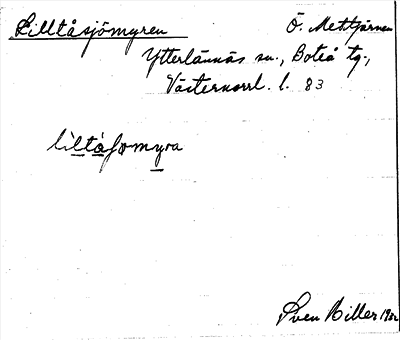 Lilltåsjömyren Ö. Mettjärnen
Ytterlännäs sn., Boteå tg.,
Västernorrl. l. 83
liltåʃomyra
Sven Biller 1932